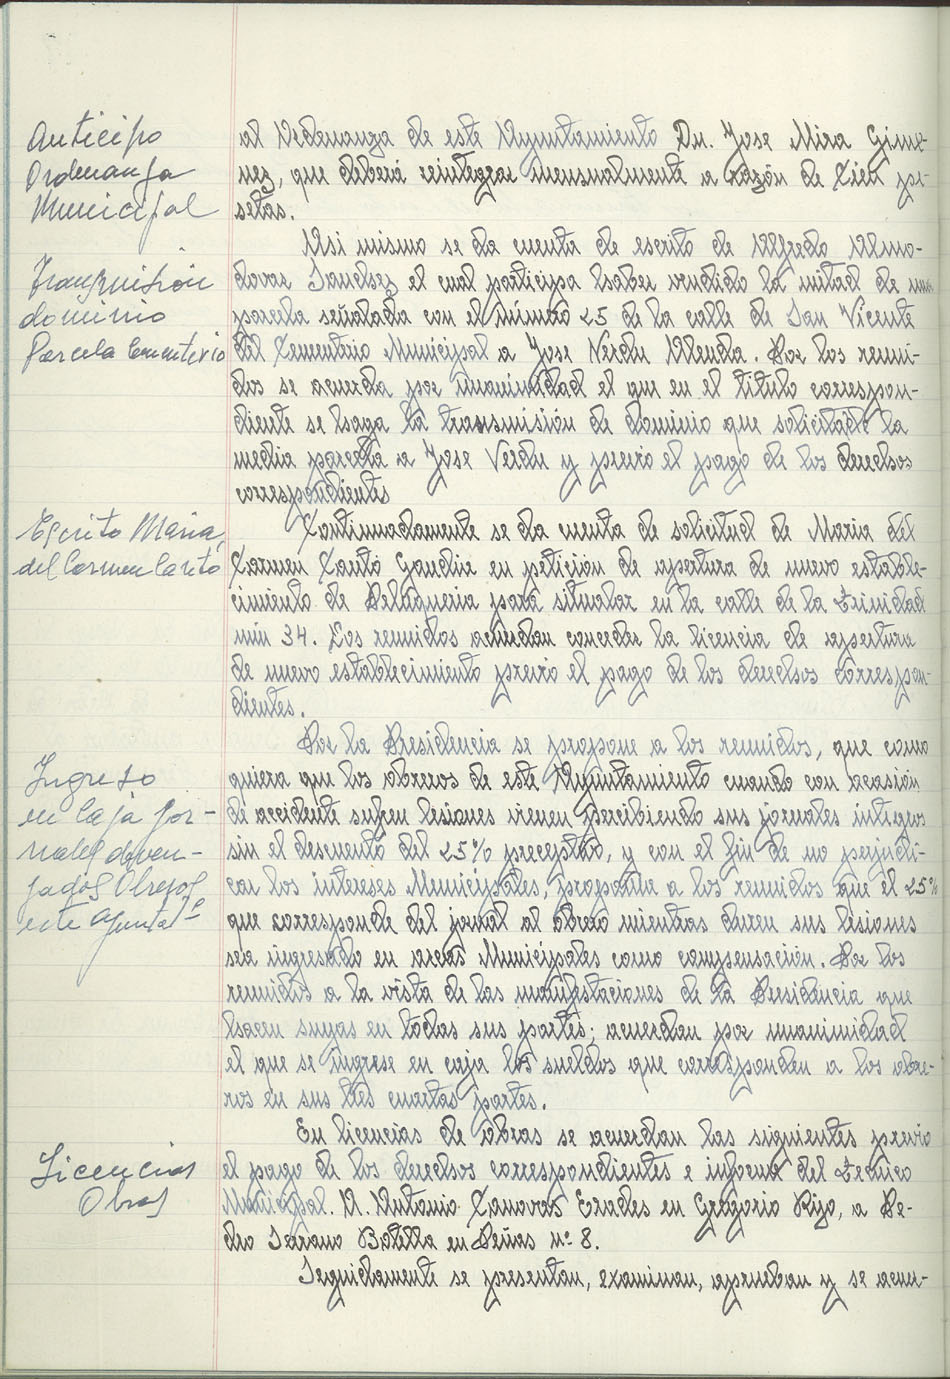 Anticipo
Ordenanza
Municipal
al Ordenanza de este Ayuntamiento Dn. Jose Mira Gime-
nez, que deberá reintegrar mensualmente a razón de Cien pe-
setas.
Transmisión
dominio
Parcela Cementerio
Asi mismo se da cuenta de escrito de Alfredo Almo-
dovar Sanchez el cual participa haber vendido la mitad de una
parcela señalada con el número 25 de la calle de San Vicente
del Cementerio Municipal a Jose Verdu Allenda. Por los reuni-
dos se acuerda por unanimidad el que en el titulo correspon-
diente se haga la transmisión de dominio que solicitada la
media parcela a Jose Verdu y previo el pago de los derechos
correspondientes
Escrito Maria
del Carmen Canto
Continuadamente se da cuenta de solicitud de Maria del
Carmen Cantó Gandia en petición de apertura de nuevo estable-
cimiento de Peluqueria para situalar en la calle de la Trinidad
núm 34. Los reunidos acuerdan conceder la licencia de apertura
de nuevo establecimiento previo el pago de los derechos correspon-
dientes.
Ingreso
en Caja jor-
nales deven-
gados Obreros
este Ayuntatº
Por la Presidencia se propone a los reunidos, que como
quiera que los obreros de este Ayuntamiento cuando con ocasión
de accidente sufren lesiones vienen percibiendo sus jornales integros
sin el descuento del 25% preceptivo, y con el fin de no perjudi-
car los intereses Municipales, proponia a los reunidos que el 25%
que corresponde del jornal al obrero mientras duren sus lesiones
sea ingresado en arcas Municipales como compensación. Por los
reunidos a la vista de las manifestaciones de la Presidencia que
hacen suyas en todas sus partes; acuerdan por unanimidad
el que se ingrese en caja los sueldos que corresponden a los obre-
ros en sus tres cuartas partes.
Licencias
Obras
En licencias de obras se acuerdan las siguientes previo
el pago de los derechos correspondientes e informe del Tecnico
Municipal. A. Antonio Canovas Erades en Gregorio Rizo, a Pe-
dro Serrano Botella en Peñas nº 8.
Seguidamente se presentan, examinan, aprueban y se acuer-